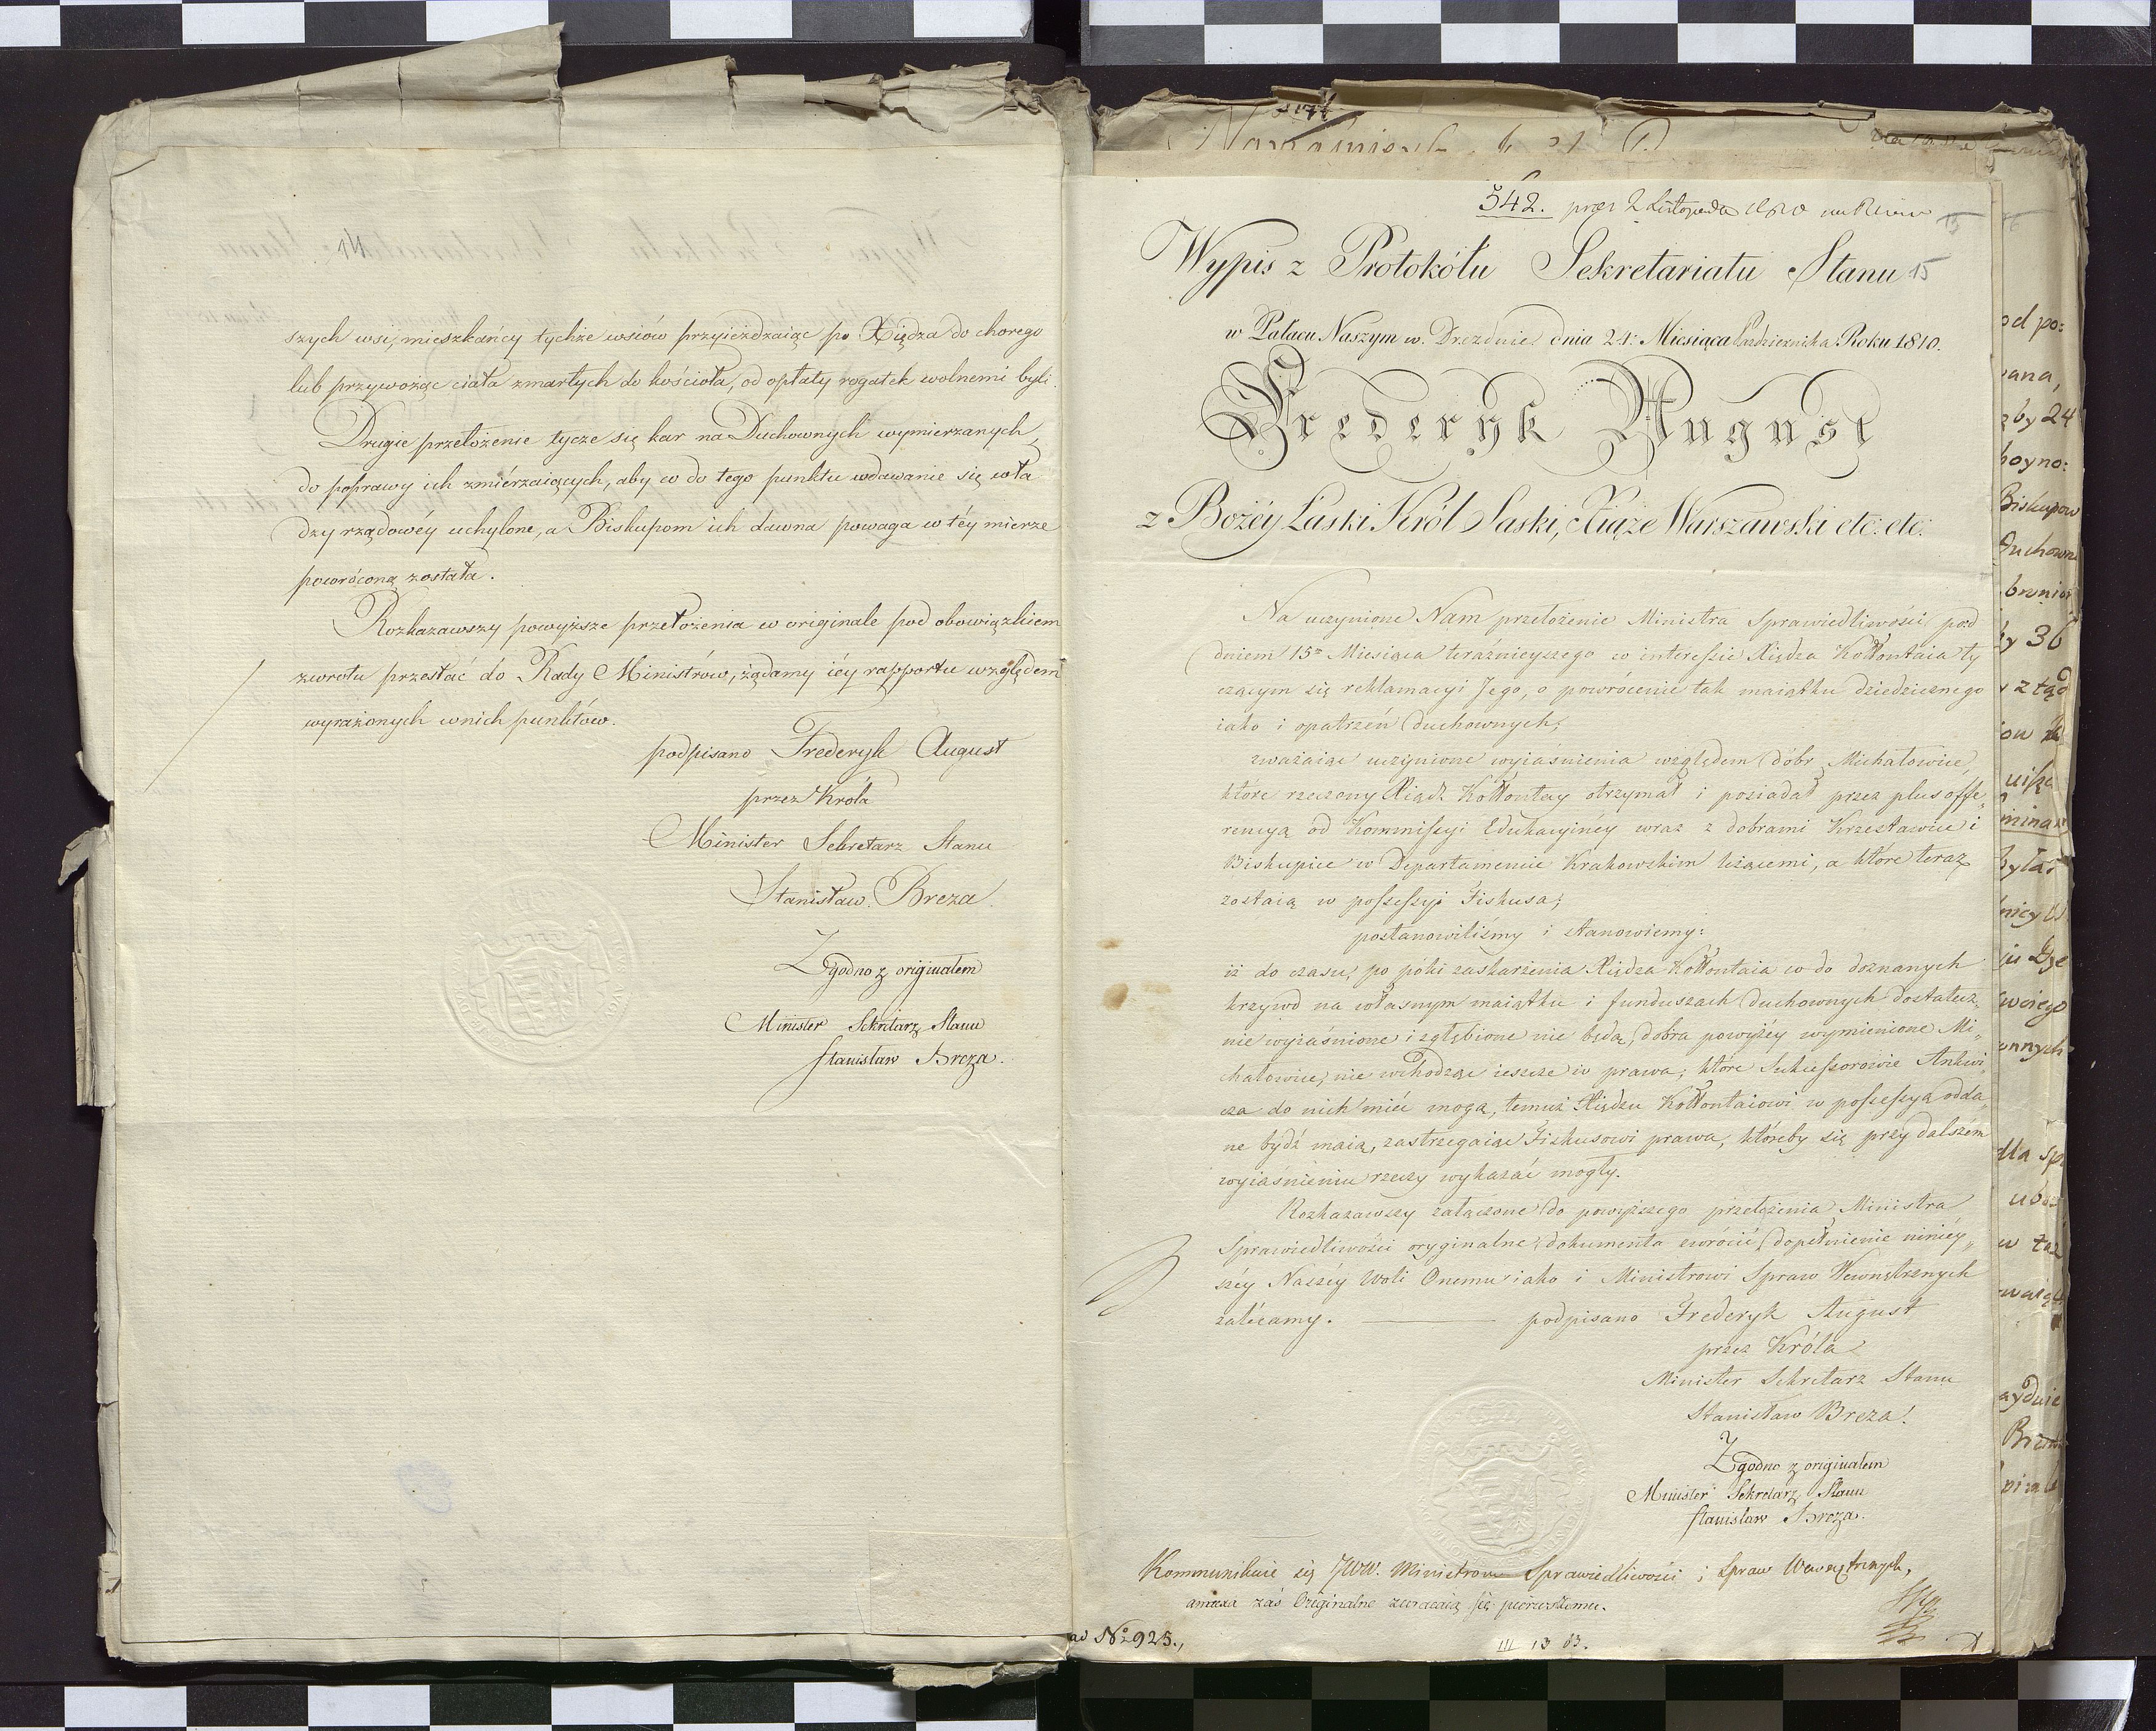 14
szych wsi, mieszkańcy tychże wsiów przyieżdzaiąc po Xiędza do chorego
lub przywożąc ciała zmarłych do kościoła, od opłaty rogatek wolnemi byli.
Drugie przełożenie tycze się kar na Duchownych wymierzanych,
do poprawy ich zmiérzaiących, aby co do tego punktu wdawanie się wła
dzy rządowéy uchylone, a Biskupom ich dawna powaga w téy mierze
powróconą została.
Rozkazawszy powyższe przełożenia w originale pod obowiązkiem
zwrotu przesłać do Rady Ministrów, żądamy iéy rapportu względem
wyrażonych w nich punktów.
podpisano Frederyk August
przez Króla
Minister Sekretarz Stanu
Stanisław Breza.
Zgodno z originałem
Minister Sekretarz Stanu
Stanisław Breza.
542. prez 2 Listopada 1810
15
Wypis z Protokółu Sekretariatu Stanu
w Pałacu Naszym w Dreznie dnia 24. Miesiąca Pazdziernika Roku 1810.
Frederyk August
z Bożéy Łaski Król Saski, Xiąże Warszawski etc: etc:
Na uczynione Nam przełożenie Ministra Sprawiedliwości pod
dniem 15m Miesiąca teráźnieyszego w interessie Xiędza Kołłontaia ty
czącym się reklamacyi Jego, o powrócenie tak maiątku dziedzicznego
iako i opatrzeń duchownych;
zważaiąc uczynione wyiaśnienia względem dóbr Michałowice,
które rzeczony Xiądz Kołłontay otrzymał i posiadał przez plus offe„
rencyą od Kommissyi Edukacyinéy wraz z dobrami Krzesławice i
Biskupice w Departamencie Krakowskim leżącemi, a które teraz
zostaią w possessyi Fiskusa;
postanowiliśmy i stanowiemy:
iż do czasu, po póki zaskarżenia Xiędza Kołłontaia co do doznanych
krzywd na własnym maiątku i funduszach duchownych dostatecz„
nie wyiaśnione i zgłębione nie będą, dobra powyżéy wymienione Mi„
chałowice, nie wchodząc ieszcze w prawa, które Sukcessorowie Ankwi„
cza do nich mieć mogą, temuż Xiędzu Kołłontaiowi w possessyą odda„
ne bydź maią, zastrzegaiąc Fiskusowi prawa, któreby się przy dalszém
wyiaśnieniu rzeczy wykazać mogły.
Rozkazawszy załączone do powyższego przełożenia Ministra
Sprawiedliwości oryginalne dokumenta zwrócić, dopełnienie niniéy„
széy Naszéy Woli Onemu iako i Ministrowi Spraw Wewnętrznych
zalécamy. podpisano Frederyk August
przez Króla
Minister Sekretarz Stanu
Stanisław Breza.
Zgodno z originałem
Minister Sekretarz Stanu
Stanisław Breza.
Kommunikuie się JWW. Ministrom Sprawiedliwości i Spraw Wewnętrznych,
annexa zaś Originalne zwracaią się pierwszemu.
ad No 925.,
III 13 63.